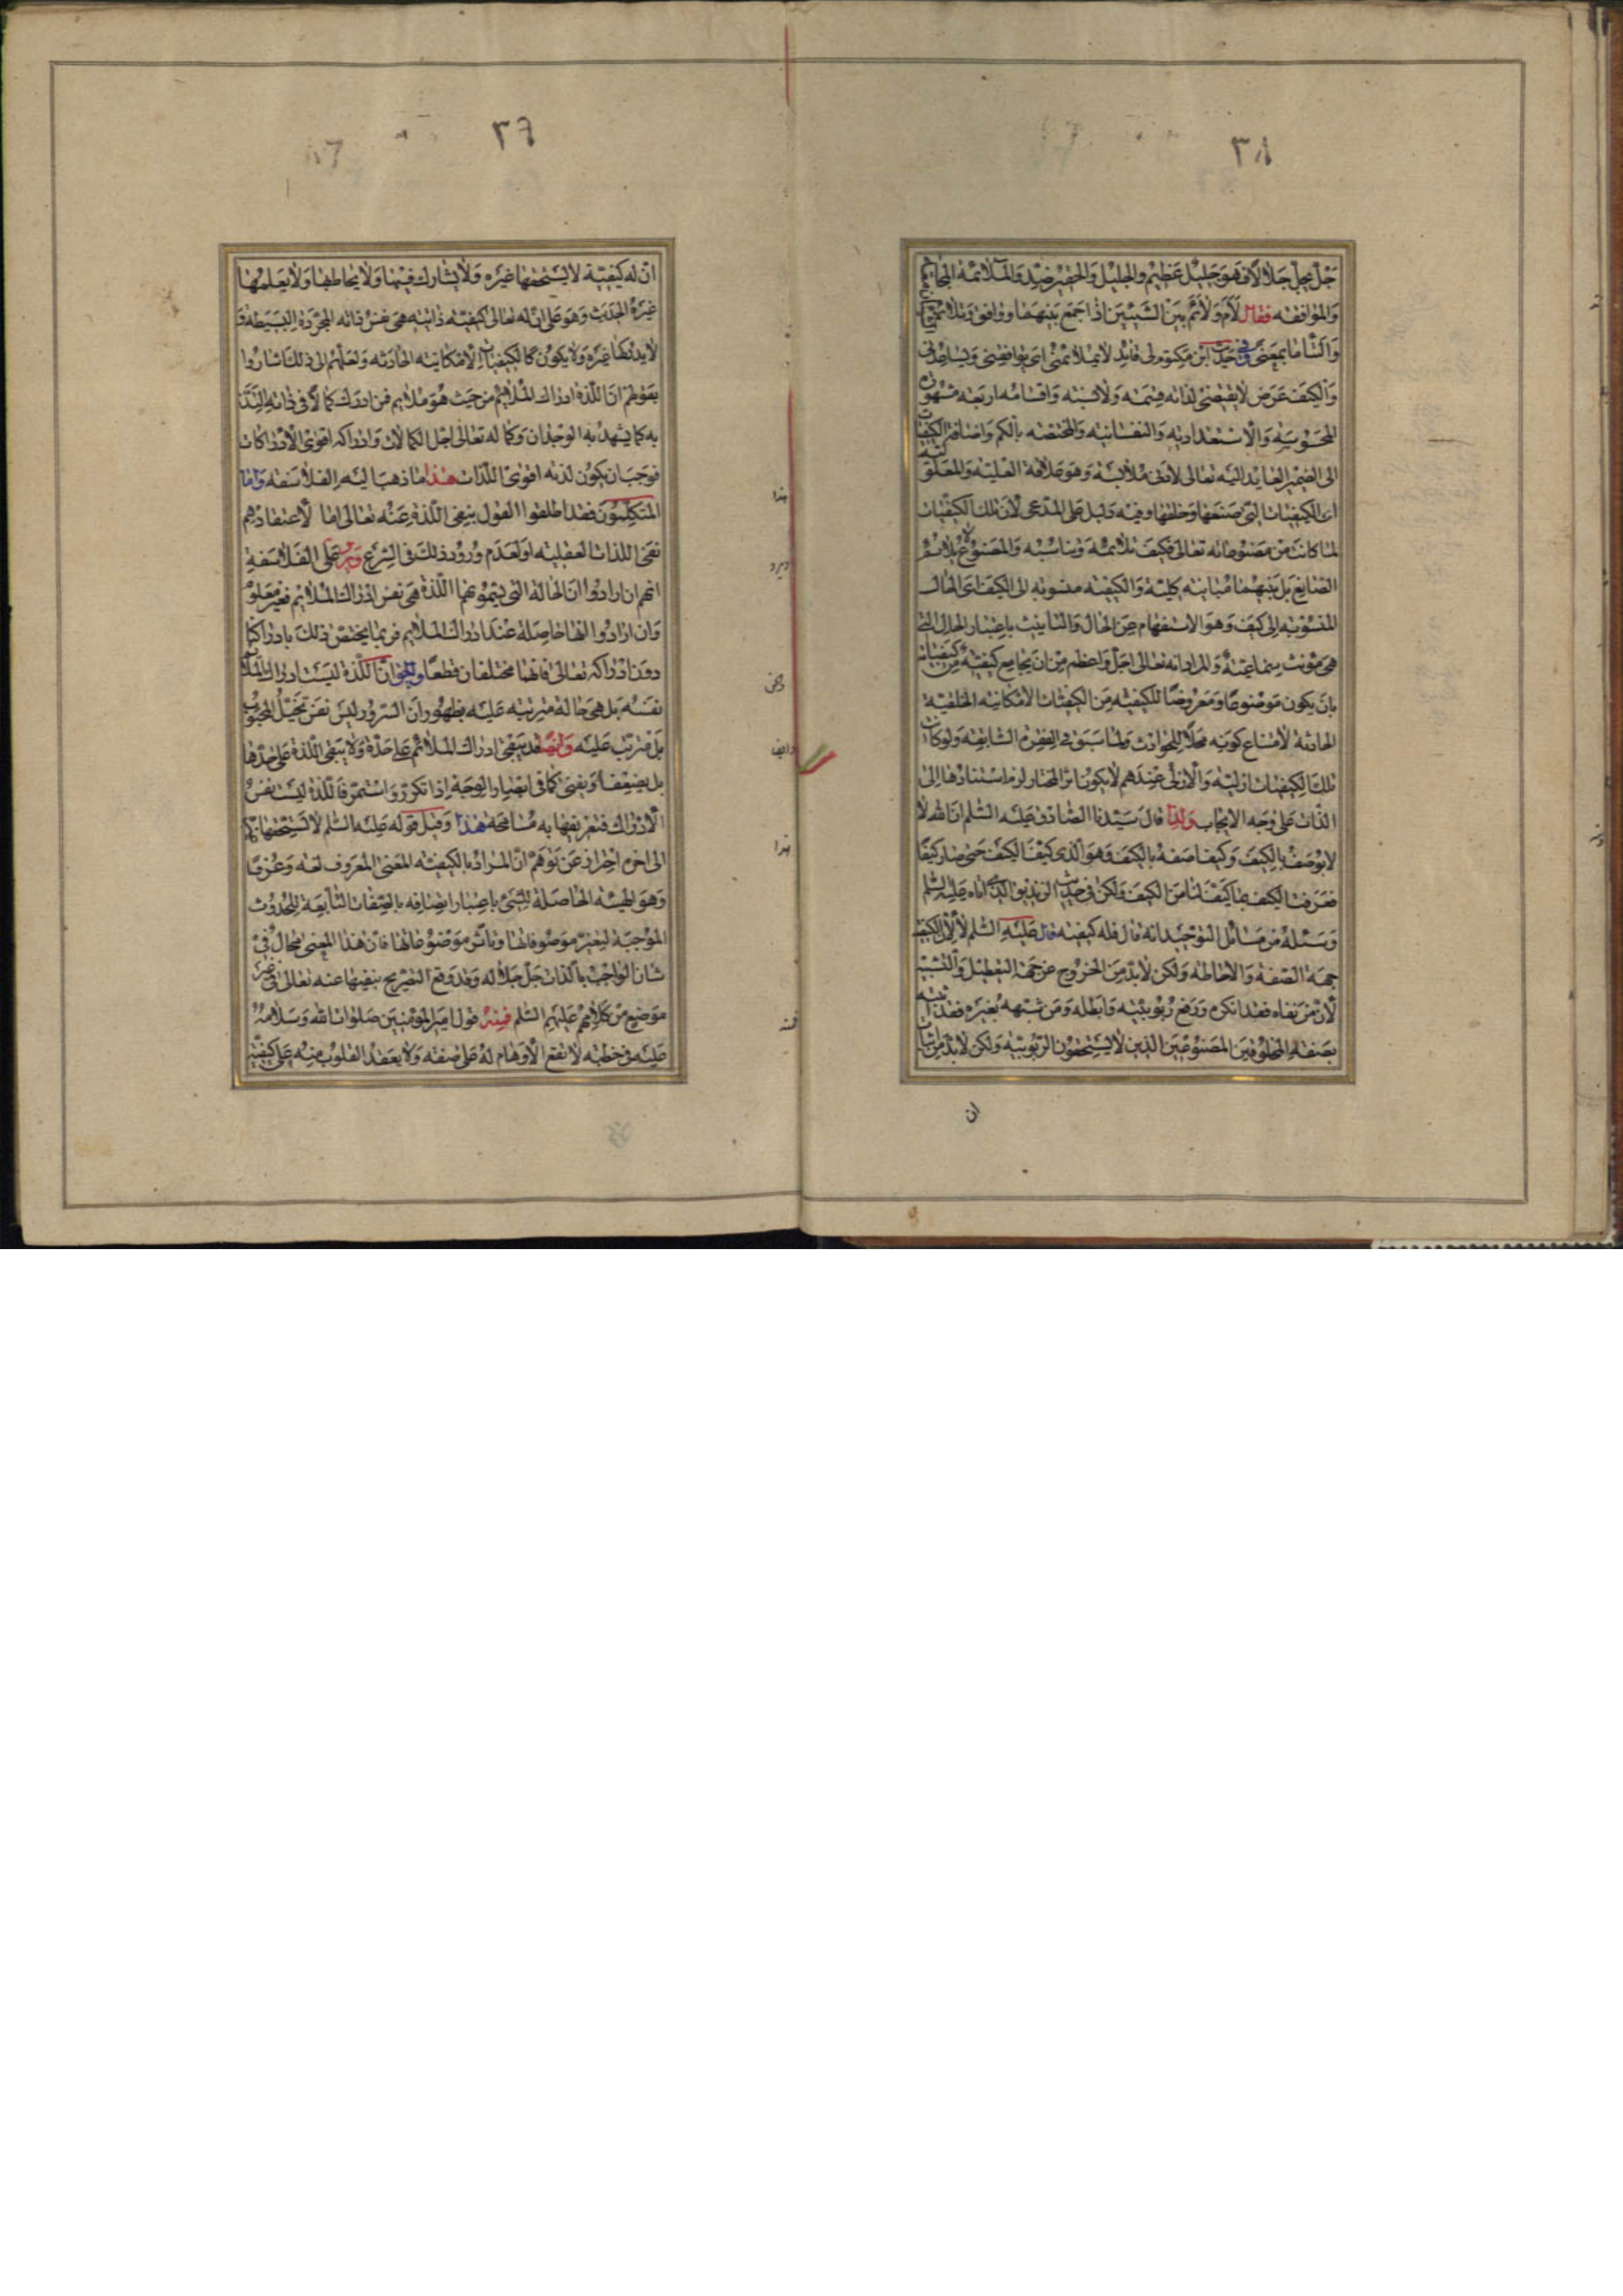 ٣٨
جل يجل جلالا فهو جليل عظيم والجليل والحقير ضد والملائمة
والموافقه فقال لأم ولائم بين الشيئين اذا جمع بينهما ووافق
والتاما بمعنى وفى حديث ابن مكتوم لى قائد لا يلائمنى اى يوافقنى ويساعدنى
والكيف عرض لا يقتضى لذاته قسمة ولا نسبة واقسامه اربعة مشهورة
المحسوسية والاستعدادية والنفسانية والمختصة بالكم واضافة الكيفيات
الى الضمير العايد اليه تعالى لادنى ملابسة وهو علاقة العلية والمعلولية
اى الكيفيات التى صنعها وخلقها وفيه دليل على المدعى لان تلك الكيفيات
لما كانت من مصنوعاته تعالى فكيف تلائمه وتناسبه والمصنوع لا يلائم
الصانع بل بينهما مباينة كلية والكيفية منسوبة الى الكيف اى الحال
المنسوبة الى كيف وهو الاستفهام عن الحال والتانيث باعتبار الحال التى
هى مونث سماعية والمراد انه تعالى اجل واعظم من ان يجامع كيفية من كيفياته
بان يكون موضوعا ومعروضا للكيفية من الكيفيات الامكانية الخلقية
الحادثة لامتناع كونه محلا للحوادث ولما سبق فى الفقرة السابقة ولو كانت
تلك الكيفيات ازلية والازلى عندهم لا يكون اثر المختار لزم استنادها الى
الذات على وجه الايجاب ولذا قال سيدنا الصادق عليه السلم ان الله لا
لا يوصف بالكيف وكيف اصفه بالكيف وهو الذى كيف الكيف حتى صار كيفا
فعرفت الكيف بما كيف لنا من الكيف ولكن فى حديث الزنديق الذى اتاه عليه السلم
وسئله من مسائل التوحيد انه قال فله كيفية قال عليه السلم لا لان الكيفية
جهة الصفة والاحاطة ولكن لا بد من الخروج عن جهة التعطيل والتشبيه
لان من نفاه فقد انكره ودفع ربوبيته وابطله ومن شبهه بغيره فقد اثبته
بصفة المخلوقين المصنوعين الذين لا يستحقون الربوبية ولكن لا بد من اثبات
ان
٣٩
ان له كيفية لا يستحقها غيره ولا يشارك فيها ولا يحاط بها ولا يعلمها
غيره الحديث وهو على ان له تعالى كيفية ذاتية هى نفس ذاته المجردة البسيطة و
لا يدركها غيره ولا يكون كالكيفيات الامكانية الحادثة ولعلهم الى ذلك اشاروا
بقولهم ان اللذة ادراك الملائم من حيث هو ملايم فمن ادرك كمالا فى ذاته التذ
به كما يشهد به الوجدان وكماله تعالى اجل الكمالات وادراكه اقوى الادراكات
فوجب ان يكون لذته اقوى اللذات هذا ما ذهب اليه الفلاسفة واما
المتكلمون فقد اطلقوا القول بنفى اللذة عنه تعالى اما لاعتقادهم
نفى اللذات العقلية او لعدم ورود ذلك فى الشرع ويرد على الفلاسفة
انهم ان ارادوا ان الحالة التى يسمونها اللذة هى نفس ادراك الملايم فغير معلوم
وان ارادوا انها حاصلة عند ادراك الملايم فربما يختص ذلك بادراكنا
دون ادراكه تعالى فانهما مختلفان قطعا والحق ان اللذة ليست ادراك الملائم
نفسه بل هى حالة مترتبة عليه بظهور ان السرور ليس نفس تخيل المحبوب
بل مترتب عليه وايضا قد يبقى ادراك الملائم على حدة ولا يبقى اللذة على حدها
بل يضعف او يفنى كما فى ابصار الوجه اذا تكرر واستمر فاللذة ليست نفس
الادراك فتعريفها به مسامحة هذا وقيل قوله عليه السلم لا يستحقها
الى اخره احتراز عن توهم ان المراد بالكيفية المعنى المعروف لغة وعرفا
وهو الهيئة الحاصلة للشئ باعتبار اتصافه بالصفات التابعة للحدوث
الموجبة لتغير موصوفاتها وتاثر موضوعاتها فان هذا المعنى محال فى
شان الواجب بالذات جل جلاله وقد وقع التصريح بنفيها عنه تعالى فى غير
موضع من كلامهم عليهم السلم فمنه قول امير المؤمنين صلوات الله وسلامه
عليه فى خطبته لا تقع الاوهام له على صفة ولا يعقد القلوب منه على كيفية
هذا
ويرد
والحق
وايضا
هذا
فمنه